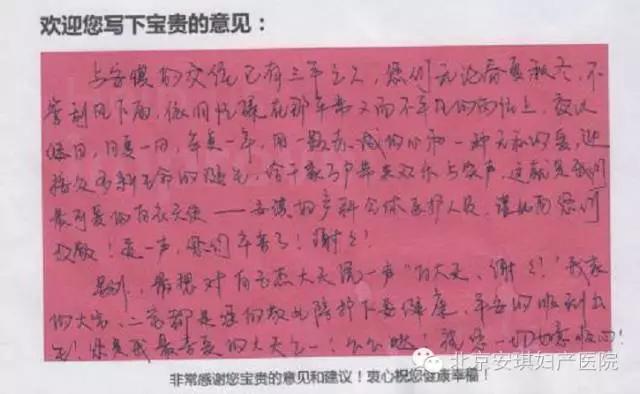 欢迎您写下宝贵的意见：
与安琪的交往已有三年之久，您们无论春夏秋冬，不
管刮风下雨，依旧忙碌在那平常又而不平凡的岗位上，夜以
继日，日复一日，年复一年，用一颗赤诚的心和一种无私的爱，迎
接众多新生命的诞生，给千家万户带来欢乐与笑声，这就是我们
最可爱的白衣天使——安琪的产科全体医护人员，谨此向您们
致敬！道一声，您们辛苦了！谢谢！
另外，最想对白玉杰大夫说一声“白大夫，谢谢！”我家
的大宝、二宝都是在您的陪护下安健康、平安的顺利出
生！您是我最喜爱的大夫之一！么么哒！祝您一切如意顺心！
非常感谢您宝贵的意见和建议！衷心祝您健康幸福！
北京安琪妇产医院